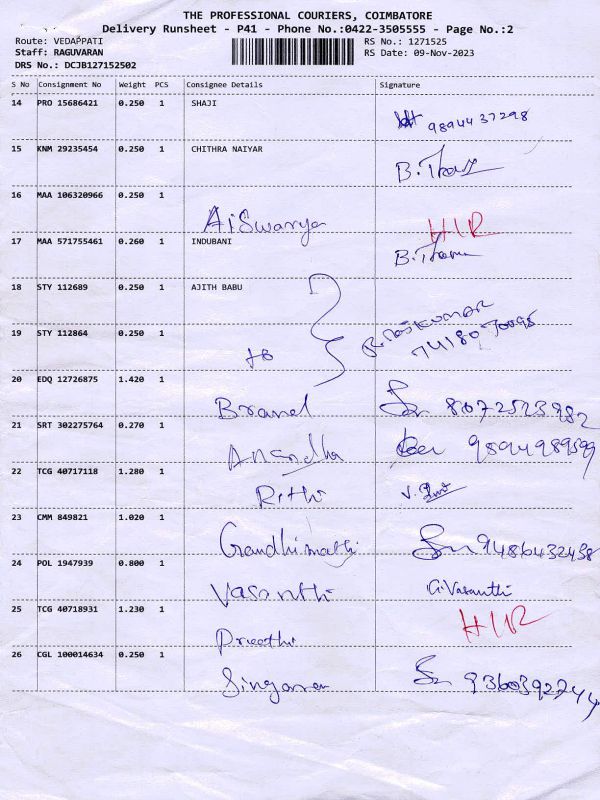 THE PROFESSIONAL COURIERS, COIMBATORE
Delivery Runsheet - P41 - Phone No.:0422-3505555 - Page No.:2
Route: VEDAPPATI RS No.: 1271525
Staff: RAGUVARAN RS Date: 09-Nov-2023
DRS No.: DCJB127152502
S No Consignment No Weight PCS Consignee Details Signature
14 PRO 15686421 0.250 1 SHAJI
9894437298
15 KNM 29235454 0.250 1 CHITHRA NAIYAR
16 MAA 106320966 0.250 1
Aiswarya HIR
17 MAA 571755461 0.260 1 INDUBANI
18 STY 112689 0.250 1 AJITH BABU
19 STY 112864 0.250 1
7418070095
20 EDQ 12726875 1.420 1
8072523982
21 SRT 302275764 0.270 1
Anandha
22 TCG 40717118 1.280 1
Rithi
23 CMM 849821 1.020 1
Gandhimathi 9486432438
24 POL 1947939 0.800 1
Vasanthi G.Vasanthi
25 TCG 40718931 1.230 1
Preethi HIR
26 CGL 100014634 0.250 1
9360392744